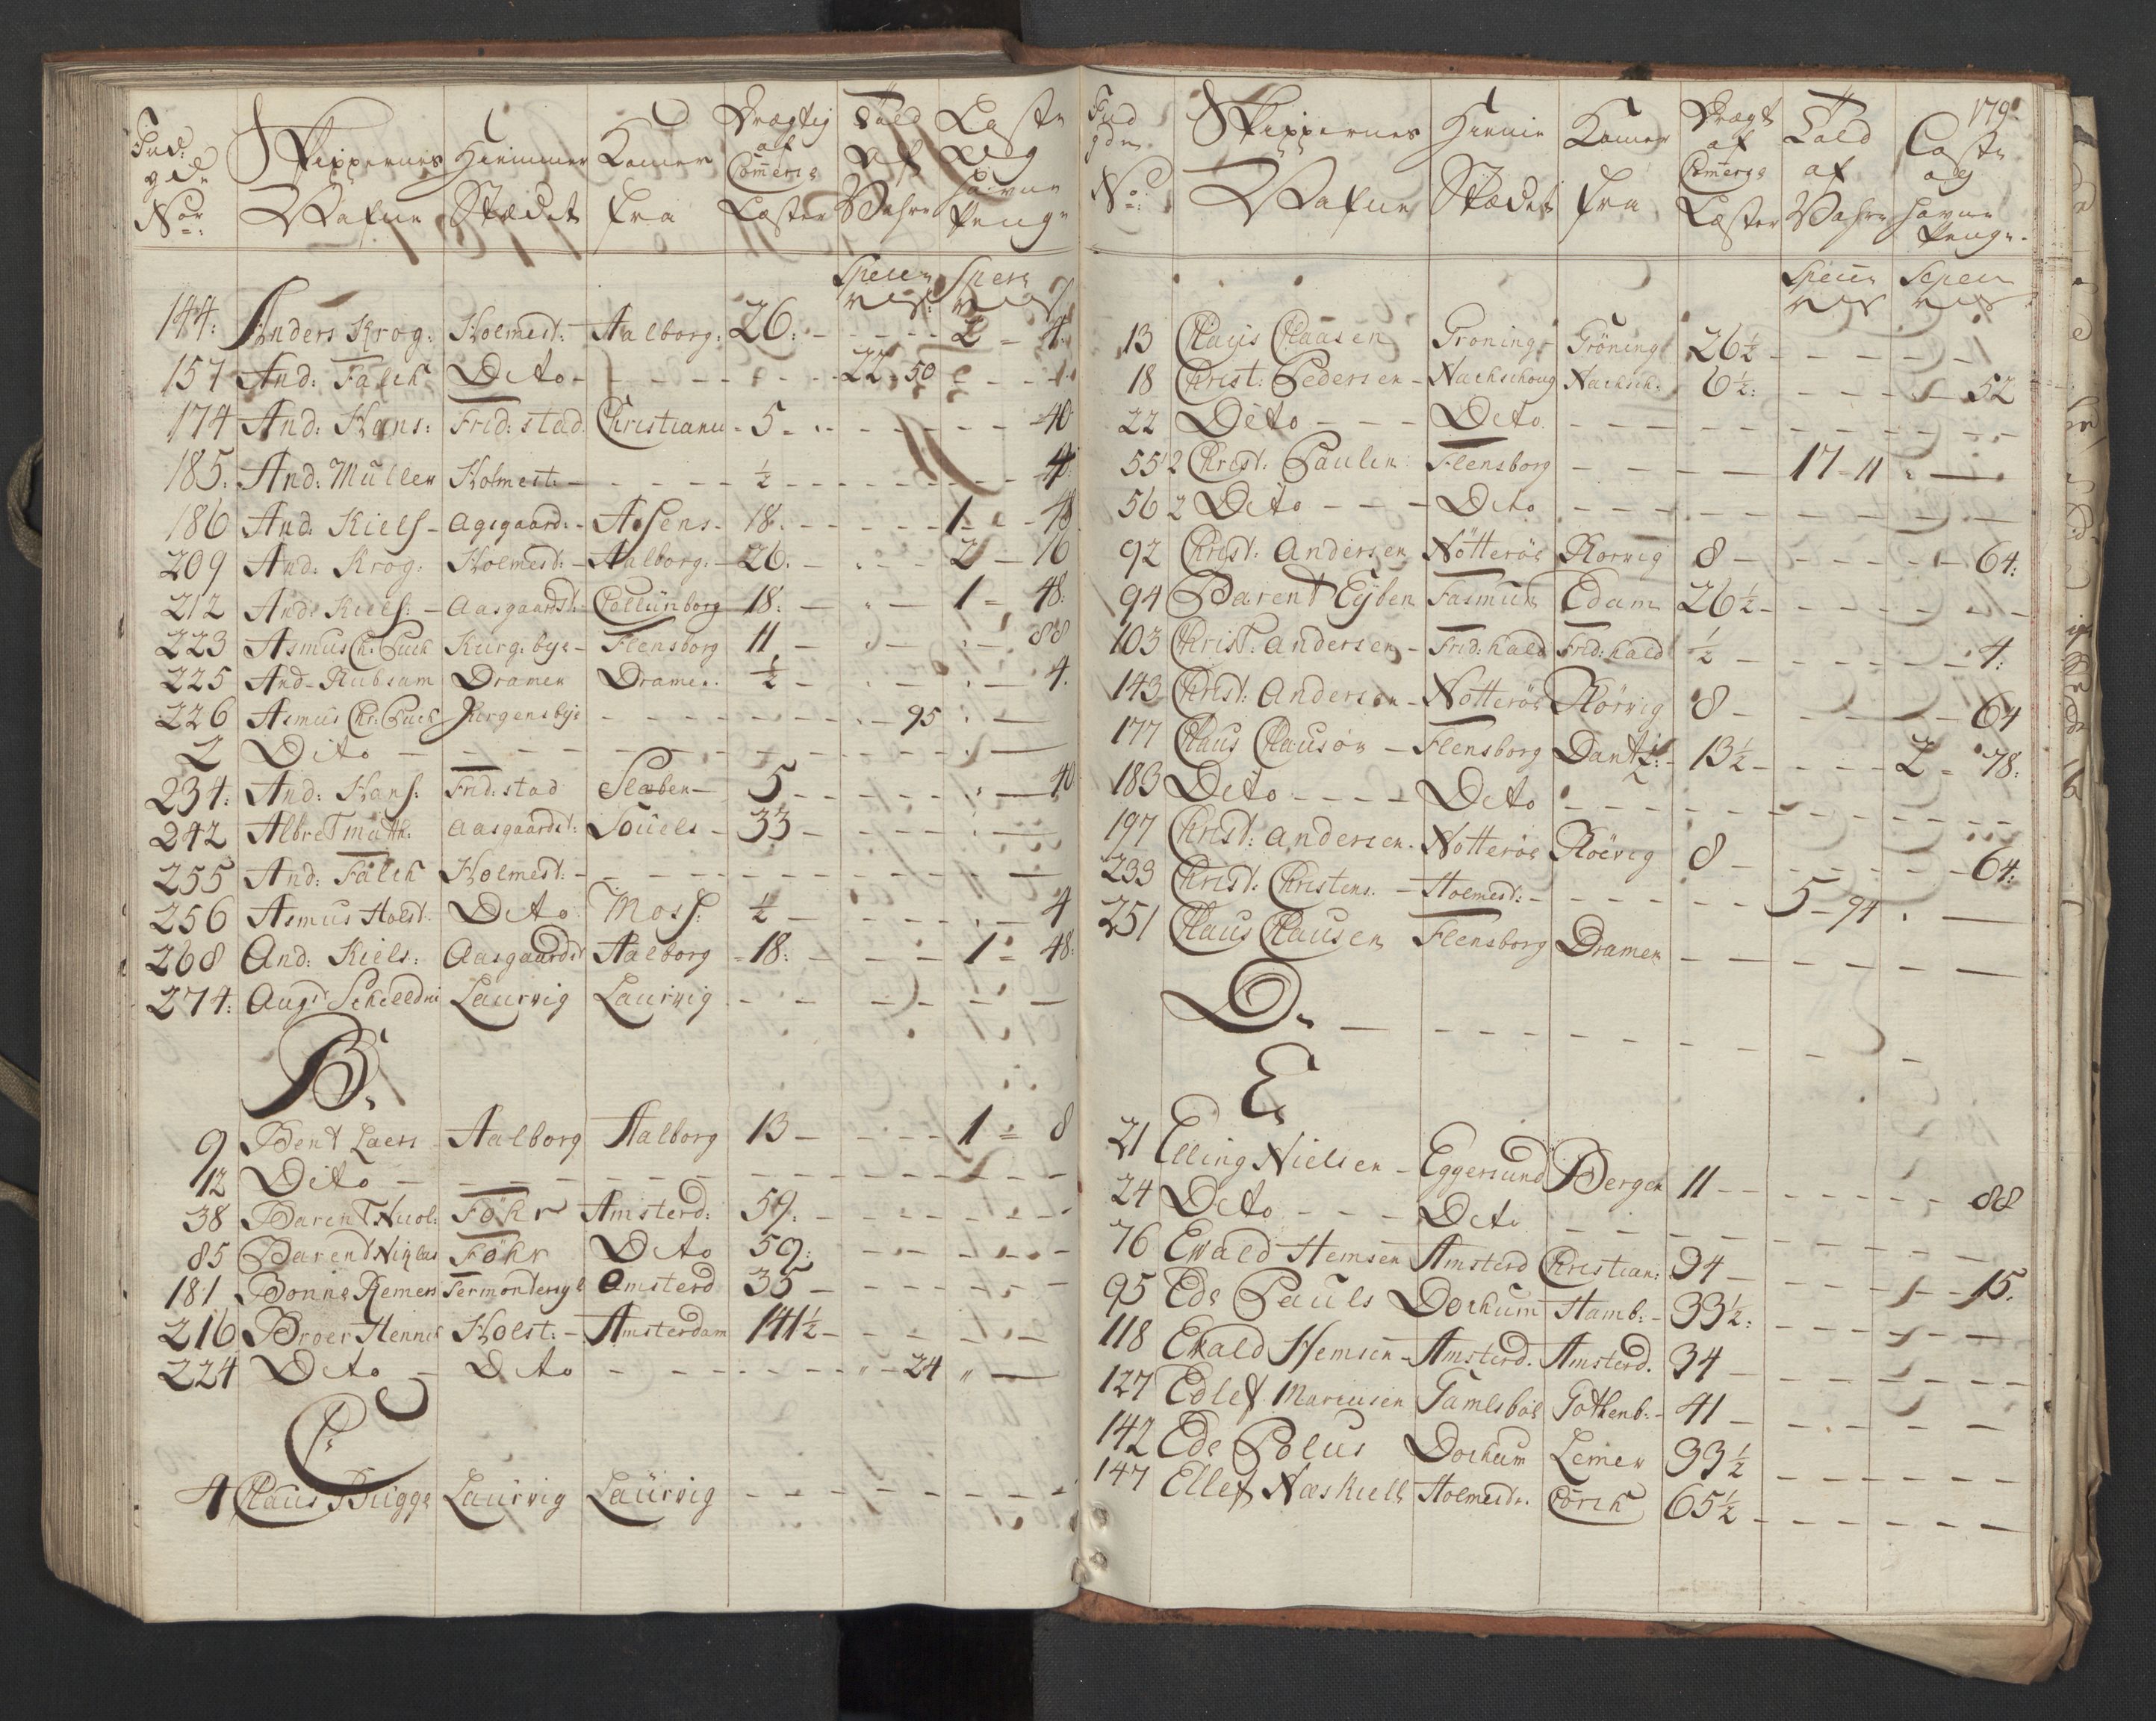 Ind:
gde
No:
Skippernes
Nafne
Hiemmer
Stædet
Kommer
fra
Drægtig
af
Comerce
Læster
Told
af
Vahre
Læste
og
Havne
Penge
Specie Specie
144: Anders Krog: Holmest: Aalborg: 26: - - - - 2 - 4
157 And: Falck Dito - - - - - - 22 50 - - -
174 And: Hans: Frid: stad Christiania - 5 - - - - - 40
185. And: Müller Holmest: - - - - - ½ - - - - - 4
186 And: Kiels - Agsgaard: - Assens - 18. - - - - 1 - 48
209 And: Krog: Holmest: - Aalborg: - 26. - - - 2 - 16
212 And: Kiels: - Aasgaardst: Callunborg 18: - - - 1 - 48:
223 Asmus Ch: Puck Kurg: bye - Flensborg 11 - - - - 88
225 And - Rubsam Dramen Dramen. ½ - - - - 4.
226 Asmus Chr: Puck Jørgensbye - - - - - - 95 . -
2 Dito - - - - - - - - - - -
234: And: Hans: Frid: stad Slæben - 5 - - - - - 40
242 Albret Math: Aasgaardst: Souels - 33 - - - - -
255 And: Falck Holmest: - - - - - - - - -
256 Asmus Holst Dito Moss: ½ - - - - - 4
268 And: Kiels: Aasgaardst Aalborg - 18: - - - 1 - 48:
274: Augst Schelldni Laurvig Laurvig - - - - - - -
B.
9 Bent Laers Aalborg Aalborg 13 - - - - 1 - 8
12 Dito - - - - - - - - - -
38 Barent Nicol: Föhr Amsterd: 59. - - - - - -
85 Barent Niclas Föhr Dito 59: - - - - - -
181 Bonne Remers Termontersyl Amsterd 35 - - - - - -
216 Broer Hennic Holst: - Amsterdam 141½ - - - - - -
224 Dito - Dito - - - - - - " - 24 " -
C:
4 Claus Bugge Laurvig Laürvig - - - - - - - -
179
Ind
gde
No:
Skippernes
Nafne
Hiemme
Stædet
Kommer
fra
Drægt
af
Comerce
Læster
Told
af
Vahre
Læste
og
Havne
Penge.
Specie Specie
13 Claus Claasen Groning - Gröning 26½ - - - - -
18 Christ: Pedersen - Nachschoug Nachsch: 6½: - - - - 52
22 Dito - - - Dito - - - - - - - -
55 2 Christ: Paulin Flensborg - - - - 17 - 11 " -
56 2 Dito - - - Dito - - - - - - - -
92 Christ: Andersen Nötteröe Rorvig 8 - - - - - 64:
94 Barent Eyben Fasmund Edam 26½ - - - - - -
103 Christ. Andersen - Frid: hald Frid: hald ½ - - - - - 4:
143 Christ: Andersen - Notteröe Rörvig 8 - - - - - 64
177 Claus Clausøn - Flensborg Dantz: - 13½ - - - 2 - 78:
183 Dito - - - - Dito - - - - - - - -
197 Christ: Andersen. Nötteröe Röevig 8 - - - - - 64:
233 Christ: Christens. - Holmest: - - - - - - 5 - 94 . -
251 Claus Clausen Flensborg Dramen - - - - - -
D. - - - - - - - - - -
E
21 Elling Nielsen - Eggersund Bergen 11 - - - - - - 88
24 Dito - - - Dito - - - - - - - -
76 Ewald Hemsen Amsterd Christian: 34 - - - - 1 - 15.
95 Ede Pauls Dockum Hamb: - 33½: - - - - - -
118 Ewald Hemsen - Amsterd. Amsterd. 34 - - - - - -
127 Edlef Marcusen Gamlsböl Gothenb: - 41 - - - - - -
142 Ede Polus Dockum Lemer 33½ - - - - - -
147 Ellef Næskiell Holmestr. Corck 65½ - - - - - -